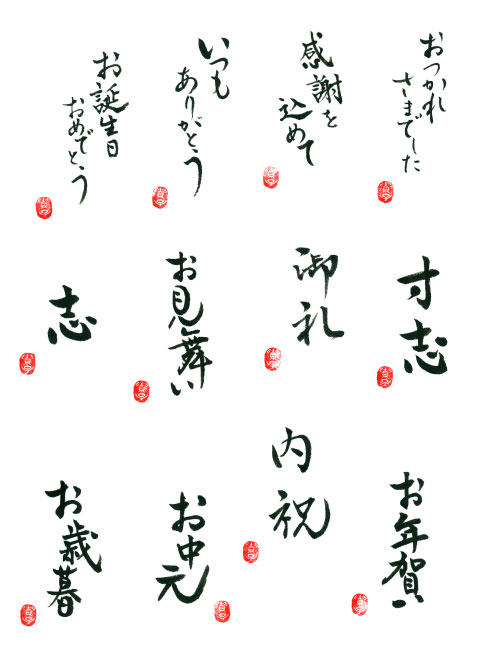 おつかれ
さまでした
感謝を
込めて
いつも
ありがとう
お誕生日
おめでとう
寸志
御礼
お見舞い
志
お年賀
内祝
お中元
お歳暮